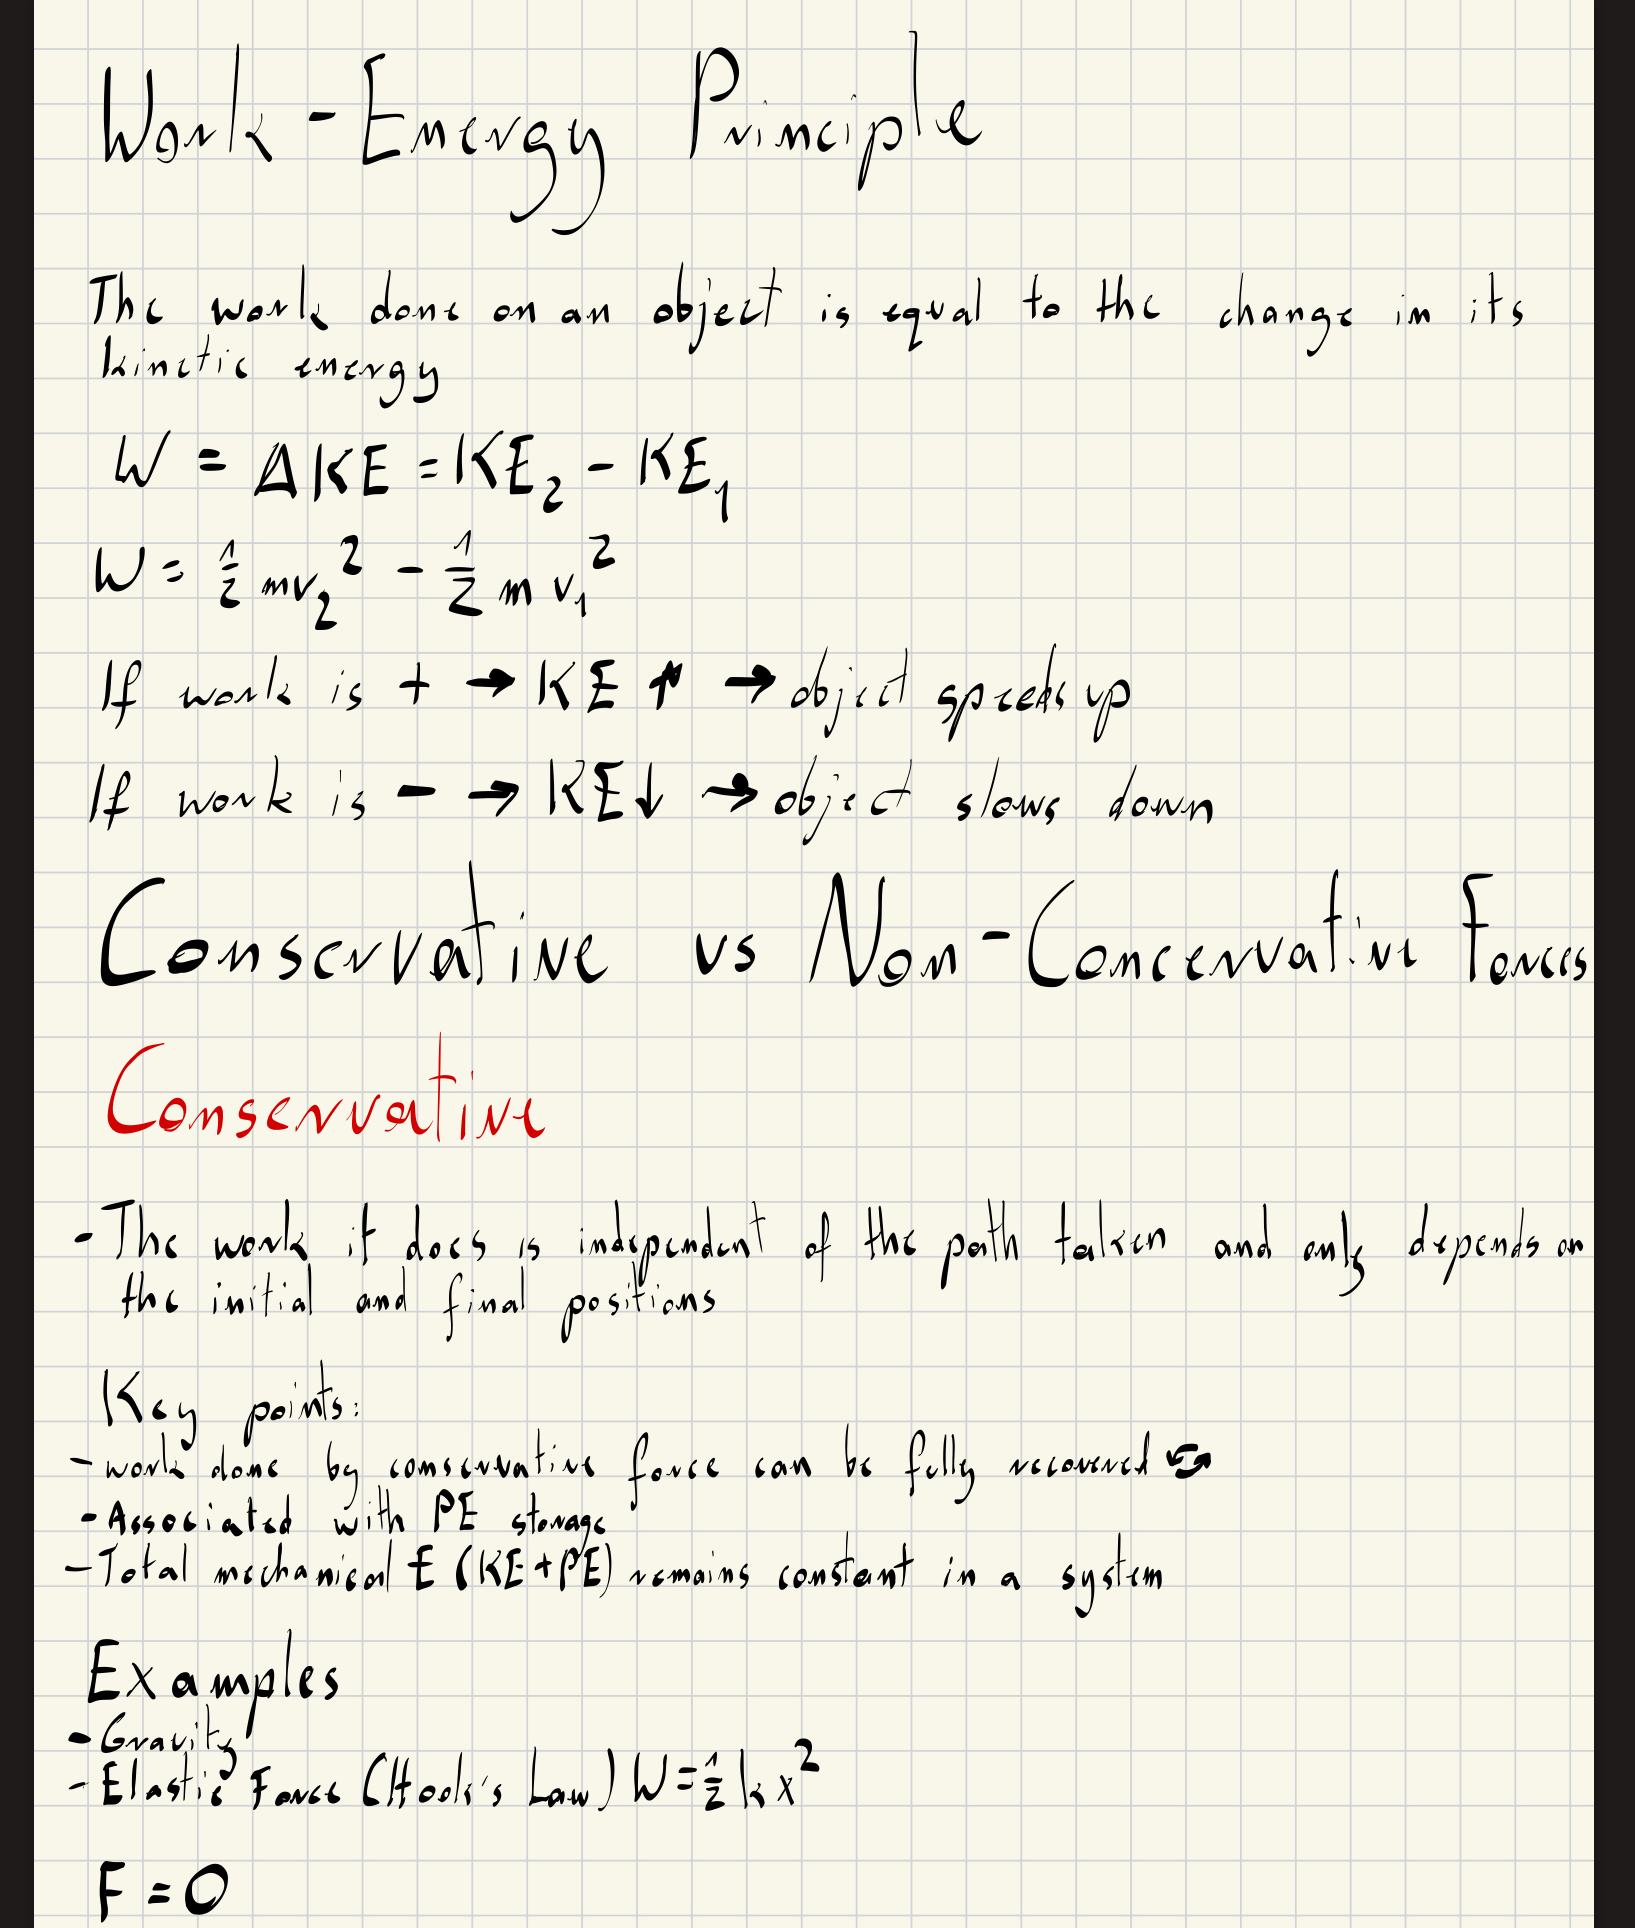 Work-Energy Principle
The work done on an object is equal to the change in its
kinetic energy
W = ΔKE = KE₂ - KE₁
W = ½ mv₂² - ½ m v₁²
If work is + → KE ↑ → object speeds up
If work is - → KE ↓ → object slows down
Conservative vs Non-Concervative Forces
Conservative
- The work it does is independent of the path taken and only depends on
the initial and final positions
Key points:
- work done by conservative force can be fully recovered 🔄
- Associated with PE storage
- Total mechanical E (KE+PE) remains constant in a system
Examples
- Gravity
- Elastic Force (Hook's Law) W = ½ k x²
F = 0